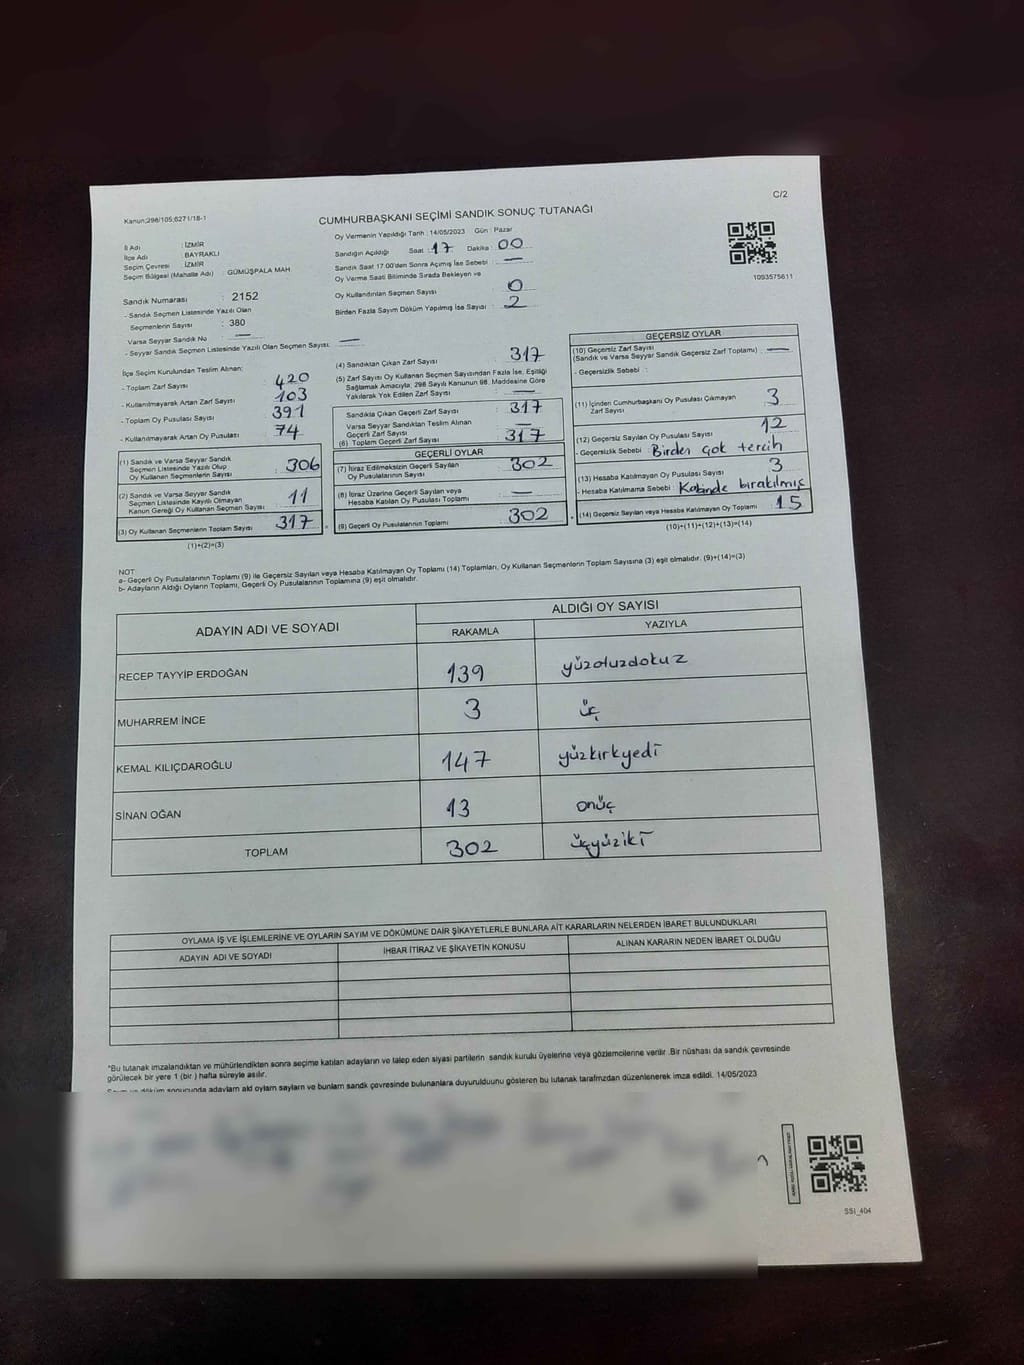 C/2
Kanun:298/105;6271/18-1
CUMHURBAŞKANI SEÇİMİ SANDIK SONUÇ TUTANAĞI
İl Adı : İZMİR
İlçe Adı : BAYRAKLI
Seçim Çevresi : İZMİR
Seçim Bölgesi (Mahalle Adı) GÜMÜŞPALA MAH.
Sandık Numarası : 2152
- Sandık Seçmen Listesinde Yazılı Olan
Seçmenlerin Sayısı : 380
Varsa Seyyar Sandık No —
- Seyyar Sandık Seçmen Listesinde Yazılı Olan Seçmen Sayısı: —
Oy Vermenin Yapıldığı Tarih : 14/05/2023 Gün : Pazar
Sandığın Açıldığı Saat : 17 Dakika : 00
Sandık Saat 17.00'den Sonra Açılmış İse Sebebi : —
Oy Verme Saati Bitiminde Sırada Bekleyen ve
Oy Kullandırılan Seçmen Sayısı : 0
Birden Fazla Sayım Döküm Yapılmış İse Sayısı : 2
1093575611
İlçe Seçim Kurulundan Teslim Alınan:
- Toplam Zarf Sayısı 420
- Kullanılmayarak Artan Zarf Sayısı 103
- Toplam Oy Pusulası Sayısı 391
- Kullanılmayarak Artan Oy Pusulası 74
(1) Sandık ve Varsa Seyyar Sandık
Seçmen Listesinde Yazılı Olup
Oy Kullanan Seçmenlerin Sayısı 306
(2) Sandık ve Varsa Seyyar Sandık
Seçmen Listesinde Kayıtlı Olmayan
Kanun Gereği Oy Kullanan Seçmen Sayısı 11
(3) Oy Kullanan Seçmenlerin Toplam Sayısı 317
(1)+(2)=(3)
(4) Sandıktan Çıkan Zarf Sayısı 317
(5) Zarf Sayısı Oy Kullanan Seçmen Sayısından Fazla İse, Eşitliği
Sağlamak Amacıyla; 298 Sayılı Kanunun 98. Maddesine Göre
Yakılarak Yok Edilen Zarf Sayısı : —
Sandıkta Çıkan Geçerli Zarf Sayısı 317
Varsa Seyyar Sandıktan Teslim Alınan
Geçerli Zarf Sayısı —
(6) Toplam Geçerli Zarf Sayısı 317
GEÇERLİ OYLAR
(7) İtiraz Edilmeksizin Geçerli Sayılan
Oy Pusulalarının Sayısı 302
(8) İtiraz Üzerine Geçerli Sayılan veya
Hesaba Katılan Oy Pusulası Toplamı —
(9) Geçerli Oy Pusulalarının Toplamı 302
GEÇERSİZ OYLAR
(10) Geçersiz Zarf Sayısı
(Sandık ve Varsa Seyyar Sandık Geçersiz Zarf Toplamı) —
- Geçersizlik Sebebi :
(11) İçinden Cumhurbaşkanı Oy Pusulası Çıkmayan
Zarf Sayısı 3
(12) Geçersiz Sayılan Oy Pusulası Sayısı 12
- Geçersizlik Sebebi Birden çok tercih
(13) Hesaba Katılmayan Oy Pusulası Sayısı 3
- Hesaba Katılmama Sebebi Kabinde bırakılmış
(14) Geçersiz Sayılan veya Hesaba Katılmayan Oy Toplamı 15
(10)+(11)+(12)+(13)=(14)
NOT
a- Geçerli Oy Pusulalarının Toplamı (9) ile Geçersiz Sayılan veya Hesaba Katılmayan Oy Toplamı (14) Toplamları, Oy Kullanan Seçmenlerin Toplam Sayısına (3) eşit olmalıdır. (9)+(14)=(3)
b- Adayların Aldığı Oyların Toplamı, Geçerli Oy Pusulalarının Toplamına (9) eşit olmalıdır.
ADAYIN ADI VE SOYADI ALDIĞI OY SAYISI
RAKAMLA YAZIYLA
RECEP TAYYİP ERDOĞAN 139 yüzotuzdokuz
MUHARREM İNCE 3 üç
KEMAL KILIÇDAROĞLU 147 yüzkırkyedi
SİNAN OĞAN 13 onüç
TOPLAM 302 üçyüziki
OYLAMA İŞ VE İŞLEMLERİNE VE OYLARIN SAYIM VE DÖKÜMÜNE DAİR ŞİKAYETLERLE BUNLARA AİT KARARLARIN NELERDEN İBARET BULUNDUKLARI
ADAYIN ADI VE SOYADI İHBAR İTİRAZ VE ŞİKAYETİN KONUSU ALINAN KARARIN NEDEN İBARET OLDUĞU
*Bu tutanak imzalandıktan ve mühürlendikten sonra seçime katılan adayların ve talep eden siyasi partilerin sandık kurulu üyelerine veya gözlemcilerine verilir .Bir nüshası da sandık çevresinde
görülecek bir yere 1 (bir ) hafta süreyle asılır.
Sayım ve döküm sonucunda adayların aldı oyların sayların ve bunların sandık çevresinde bulunanlara duyurulduunu gösteren bu tutanak tarafmzdan düzenlenerek imza edildi. 14/05/2023
SSI_404